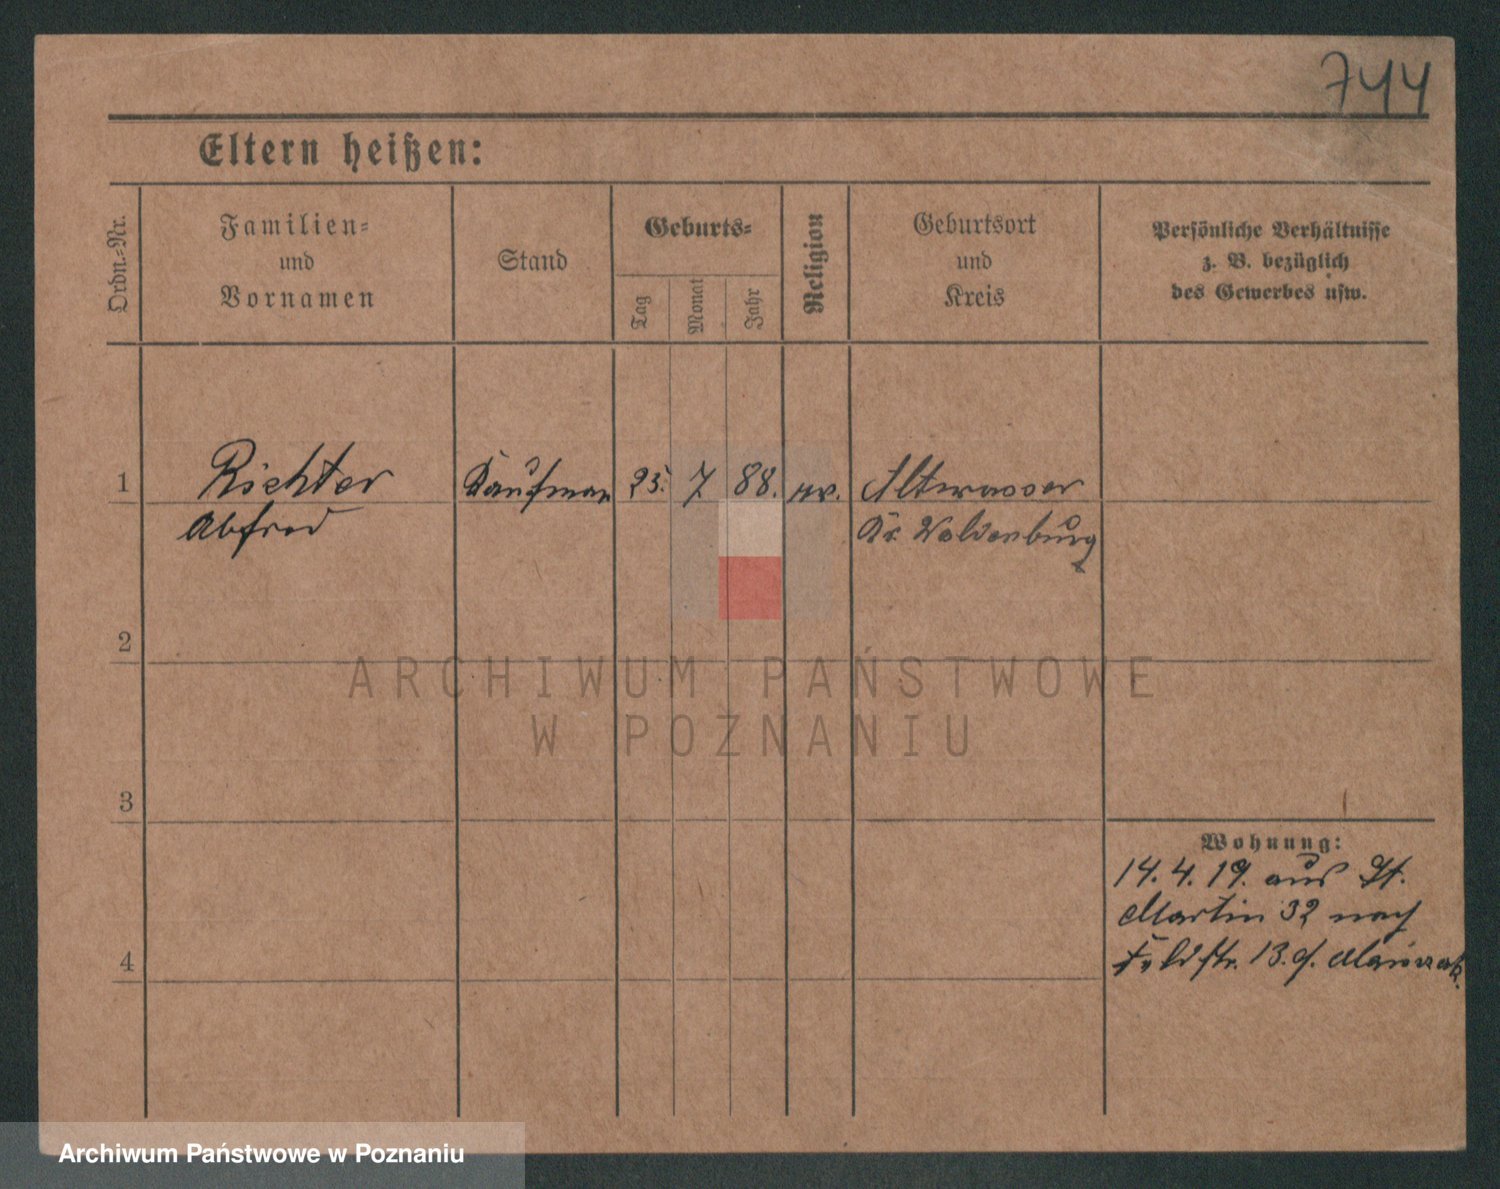 744
Eltern heißen:
Ordn.-Nr.
Familien-
und
Vornamen
Stand
Geburts-
Tag
Monat
Jahr
Religion
Geburtsort
und
Kreis
Persönliche Verhältnisse
z. B. bezüglich
des Gewerbes usw.
1
Richter
Kaufman
25.
7
88.
ev.
Altwasser
Alfred
Kr. Waldenburg
2
ARCHIWUM PAŃSTWOWE
W POZNANIU
3
Wohnung:
14. 4. 19. aus St.
Martin 32 nach
4
Feldstr. 13.
Archiwum Państwowe w Poznaniu